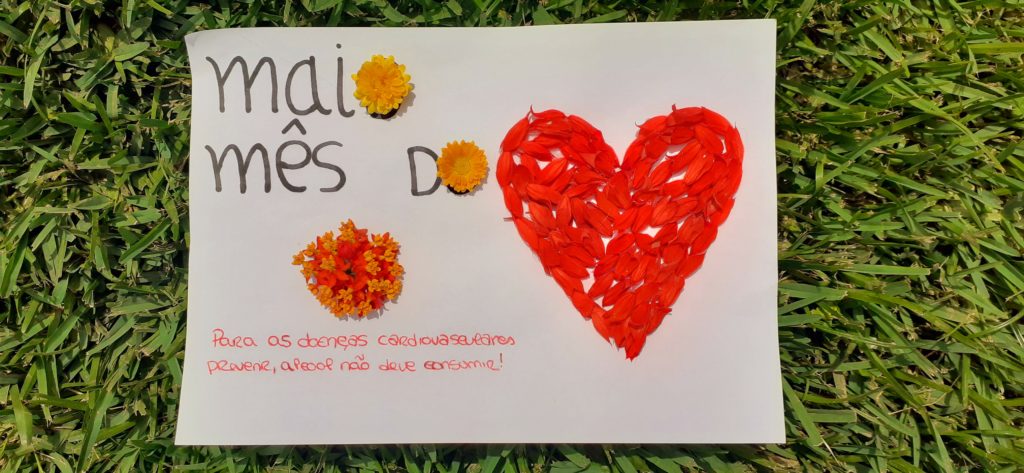 mai
mês D
Para as doenças cardiovasculares
prevenir, alcool não deve consumir!